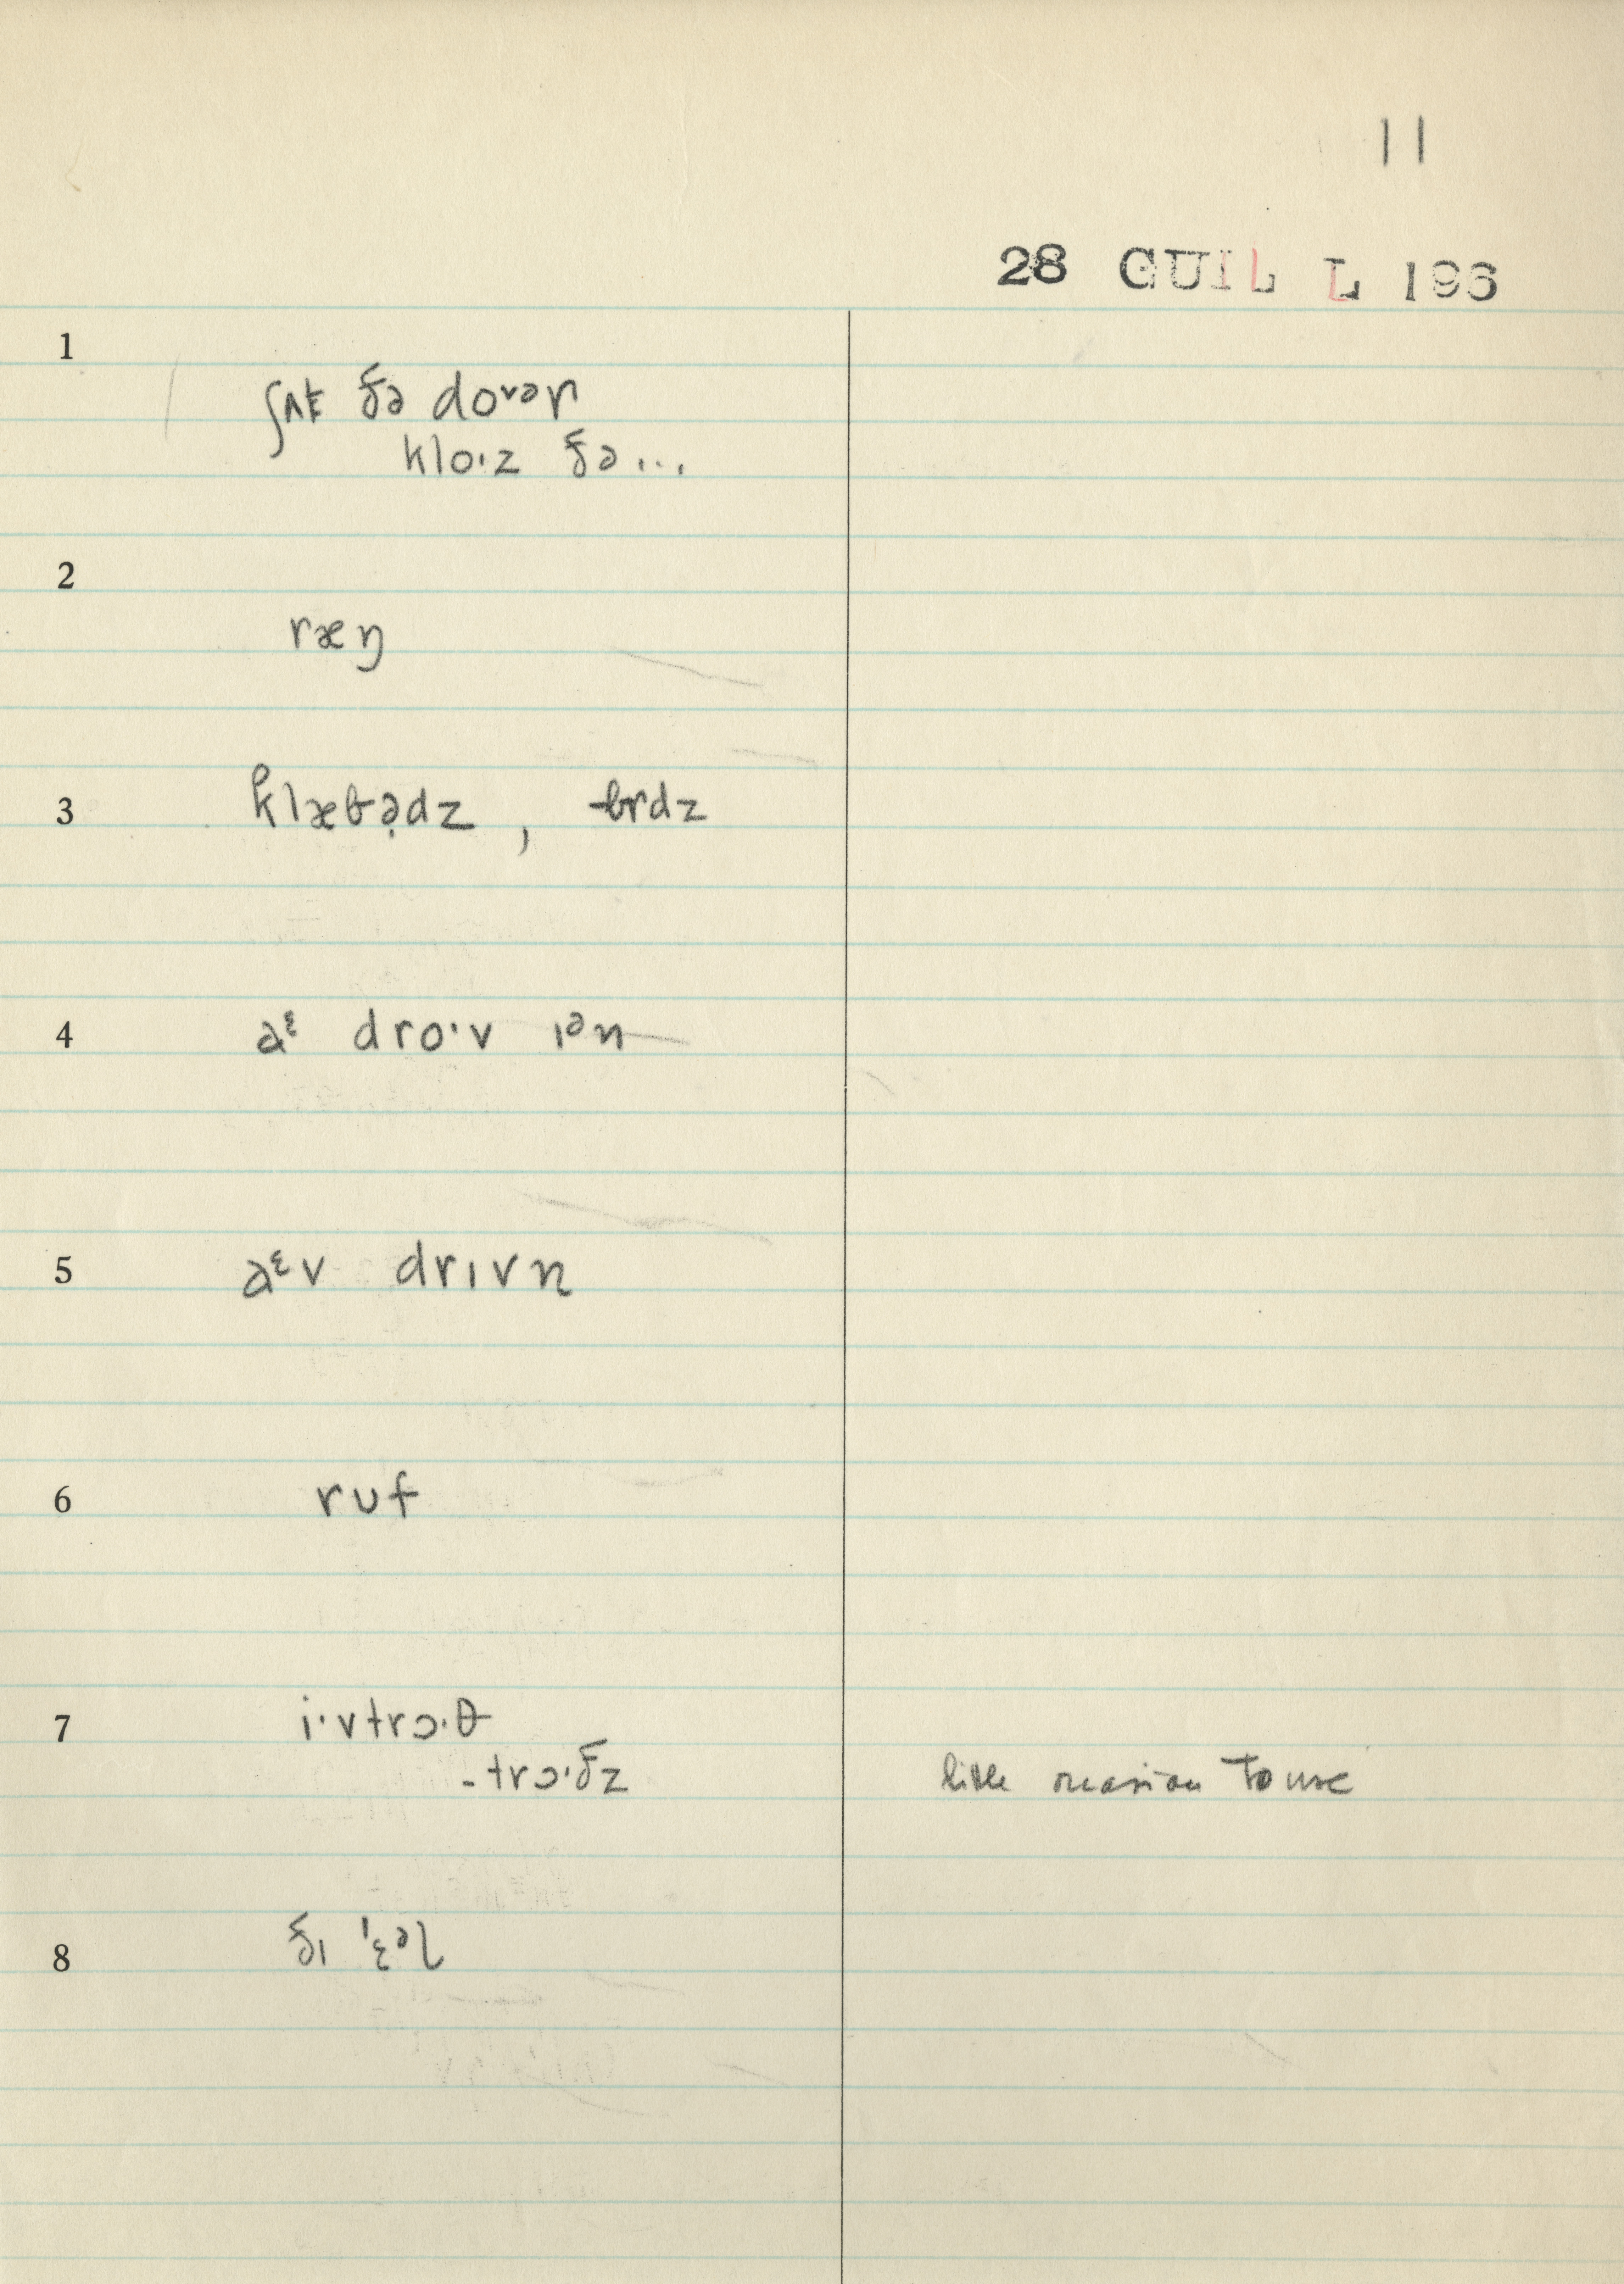 11
28 GUIL L 196
1
ʃʌt ðə doᵛᵊr
klo·z ðə...
2
ræŋ
3
klæbə̣dz , brdz
4
aᵋ dro·v ɪᵊn
5
aᵋv drɪvn
6
ruf
7
i·vtrɔ·θ
-trɔ·ðz
little occasion to use
8
ðɪ ˈɛᵊl